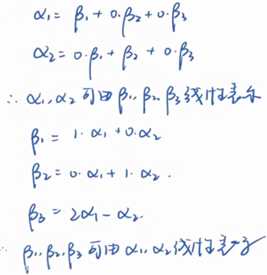 α₁ = β₁ + 0·β₂ + 0·β₃
α₂ = 0·β₁ + β₂ + 0·β₃
∴ α₁, α₂ 可由 β₁, β₂, β₃ 线性表示
β₁ = 1·α₁ + 0·α₂
β₂ = 0·α₁ + 1·α₂.
β₃ = 2α₁ - α₂.
∴ β₁, β₂, β₃ 可由 α₁, α₂ 线性表示